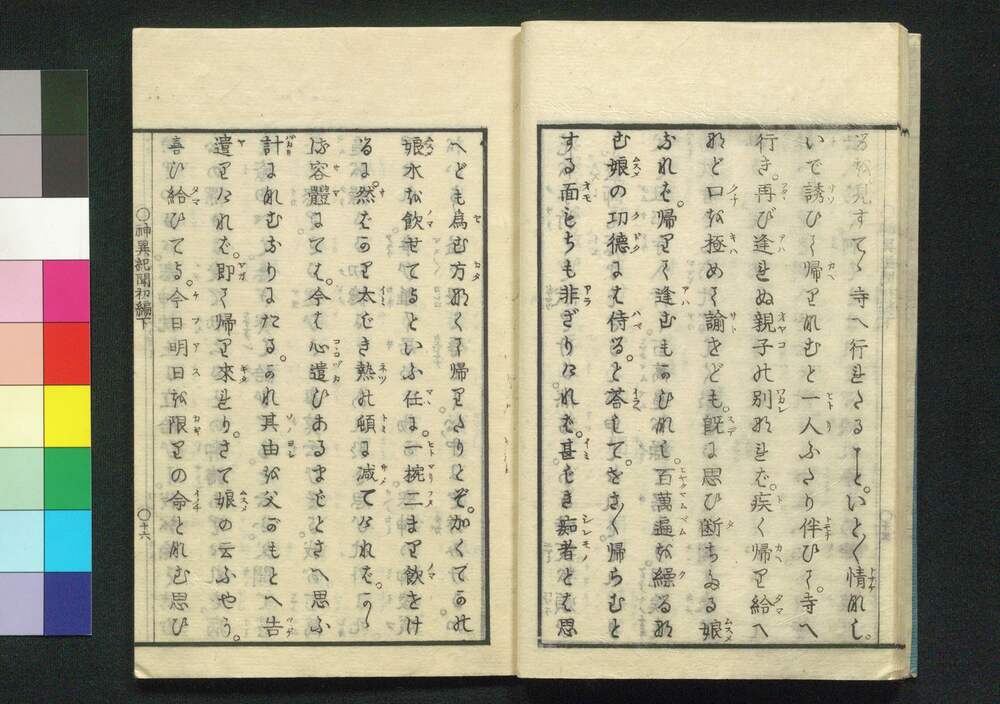 を見すてゝ寺へ行きたること。いと〳〵情なし。
いで誘ひて帰りなむと一人ふたり伴ひて。寺へ
行き。再び逢はぬ親子の別なれば。疾く帰り給へ
など口を極めて諭せども。既に思ひ断ちたる娘
なれば。帰りて逢むもかひなし。百萬遍を繰るな
む娘の功德には侍る。と荅して。をさ〳〵帰らむと
する面もちも非ざりければ。甚じき痴者とは思
へども為む方なくて帰りたりとぞ。加くてかの
娘水を飲せてよといふ任に。一捥二ま里飲をけ
るに。然ばかり太じき熱の頓に減てければ。かゝ
る容體にては。今は心遣ひあるまじとさへ思ふ
計になむなりにたる。かれ其由を父がもとへ告
遣りければ。即て帰り來れり。さて娘の云ふやう。
喜び給ひてよ。今日明日を限りの命となむ思ひ
〇神異紀聞初編下
〇十六